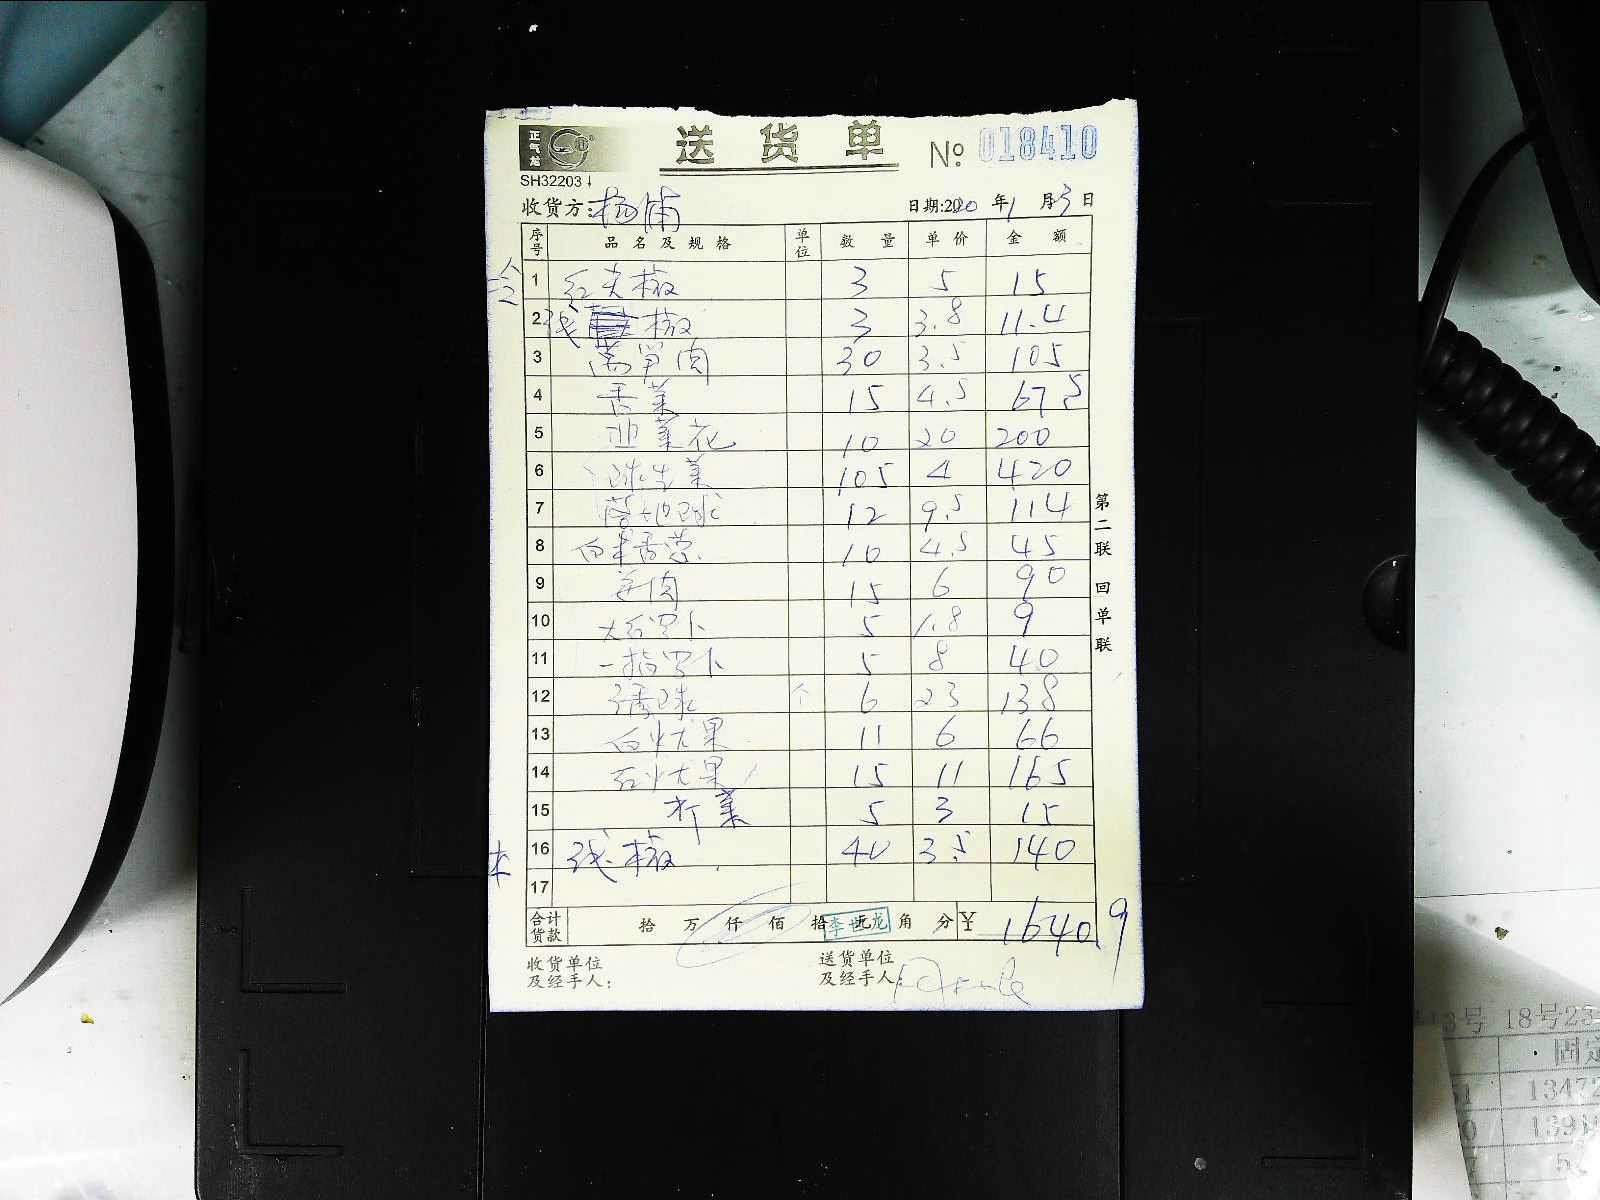 正气龙
送货单
No 018410
SH32203
收货方:杨浦
日期:2020年1月3日
序号 品名及规格 单位 数量 单价 金额
1 红尖椒 3 5 15
2 线椒 3 3.8 11.4
3 莴笋肉 30 3.5 105
4 香菜 15 4.5 67.5
5 韭菜花 10 20 200
6 球生菜 105 4 420
7 12 9.5 114
8 10 4.5 45
9 姜肉 15 6 90
10 大红罗卜 5 1.8 9
11 一指罗卜 5 8 40
12 绣球 个 6 23 138
13 白火龙果 11 6 66
14 红火龙果 15 11 165
15 芥菜 5 3 15
16 线椒 40 3.5 140
17
合计货款 拾万仟佰拾元角分 ¥ 1640.9
李世龙
收货单位及经手人:
送货单位及经手人:
第二联 回单联
13号 18号23
固定
51 13472
0 1391
7 5